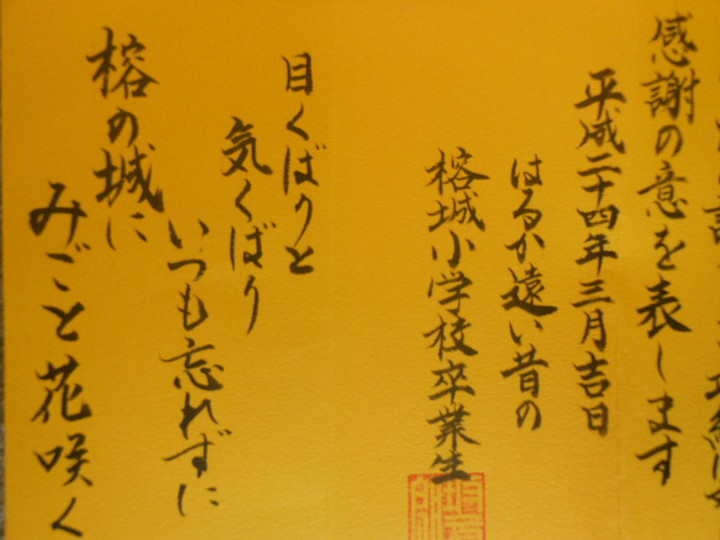 感謝の意を表します
平成二十四年三月吉日
はるか遠い昔の
榕城小学校卒業生
目くばりと
気くばり
いつも忘れずに
榕の城に
みごと花咲く